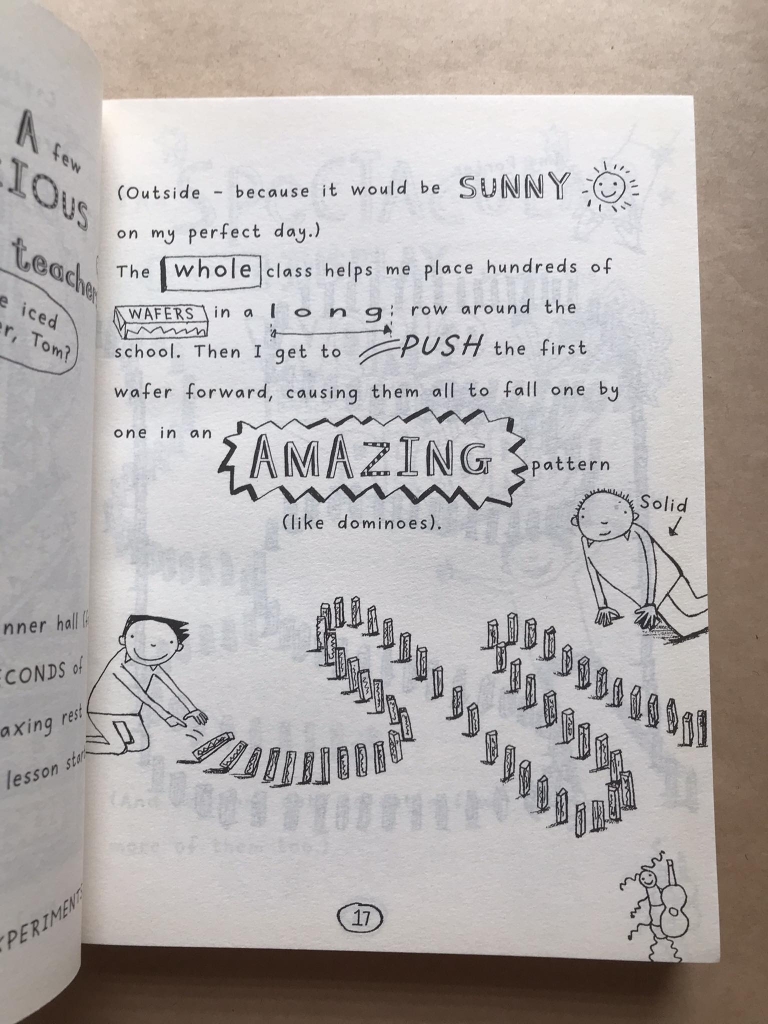 A few
IOUS
teacher
e iced
er, Tom?
nner hall
ECONDS of
axing rest
lesson star
XPERIMENT
(Outside – because it would be SUNNY
on my perfect day.)
The whole class helps me place hundreds of
WAFERS in a long row around the
school. Then I get to PUSH the first
wafer forward, causing them all to fall one by
one in an AMAZING pattern
(like dominoes).
Solid
(And
more of them too.)
17